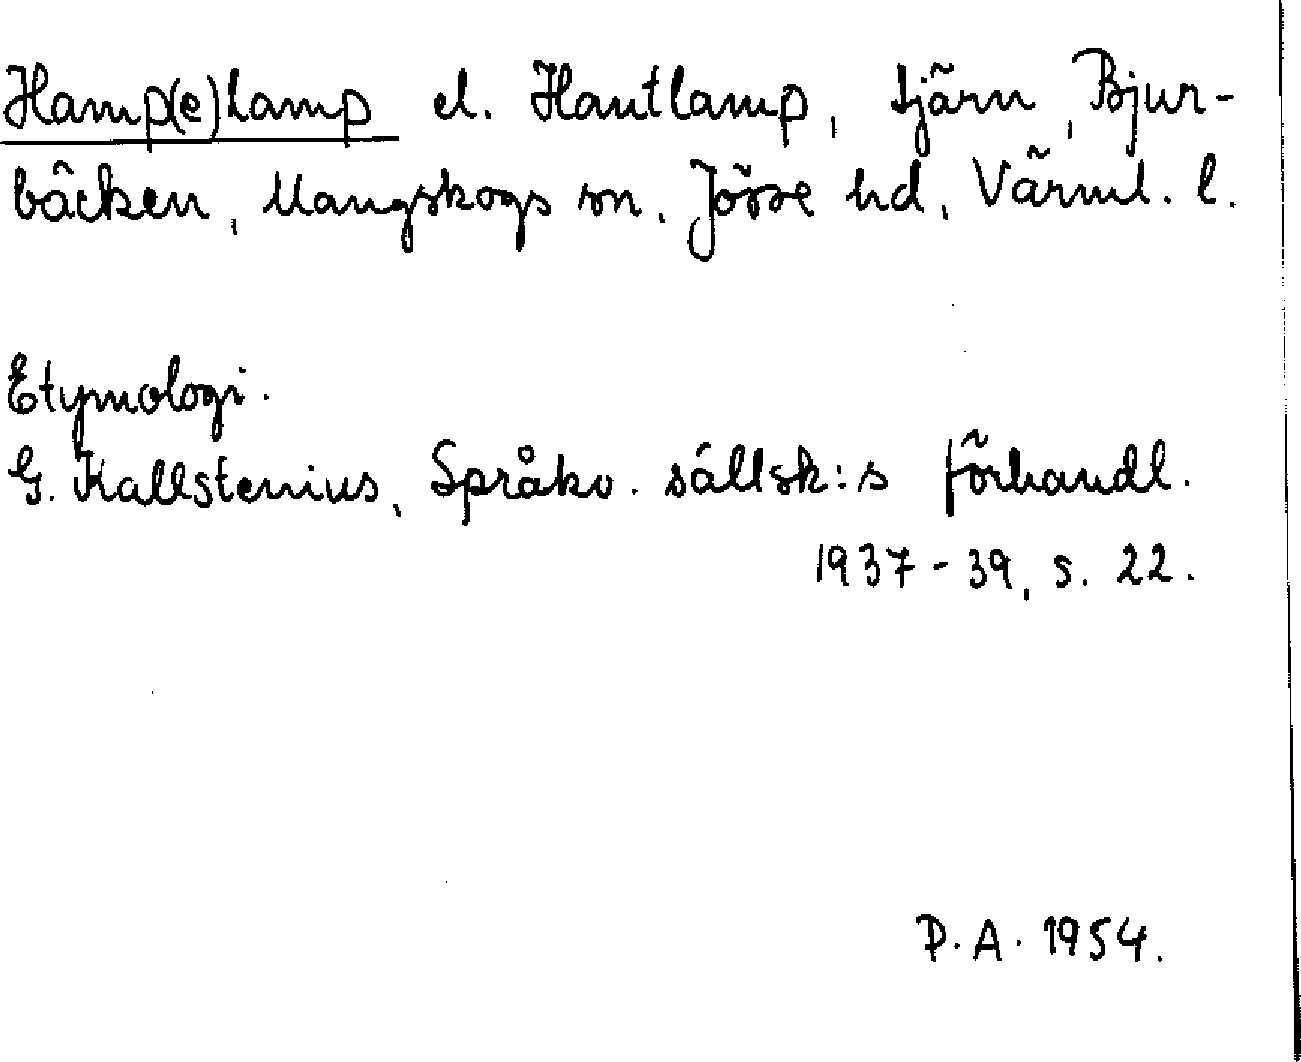 Hamp(e)lamp el. Hautlamp, tjärn, Bjur-
bäcken, Mangskogs sn, Jösse hd, Värml. l.
Etymologi.
G. Kallstenius, Språkv. sällsk:s förhandl.
1937-39, s. 22.
P.A. 1954.